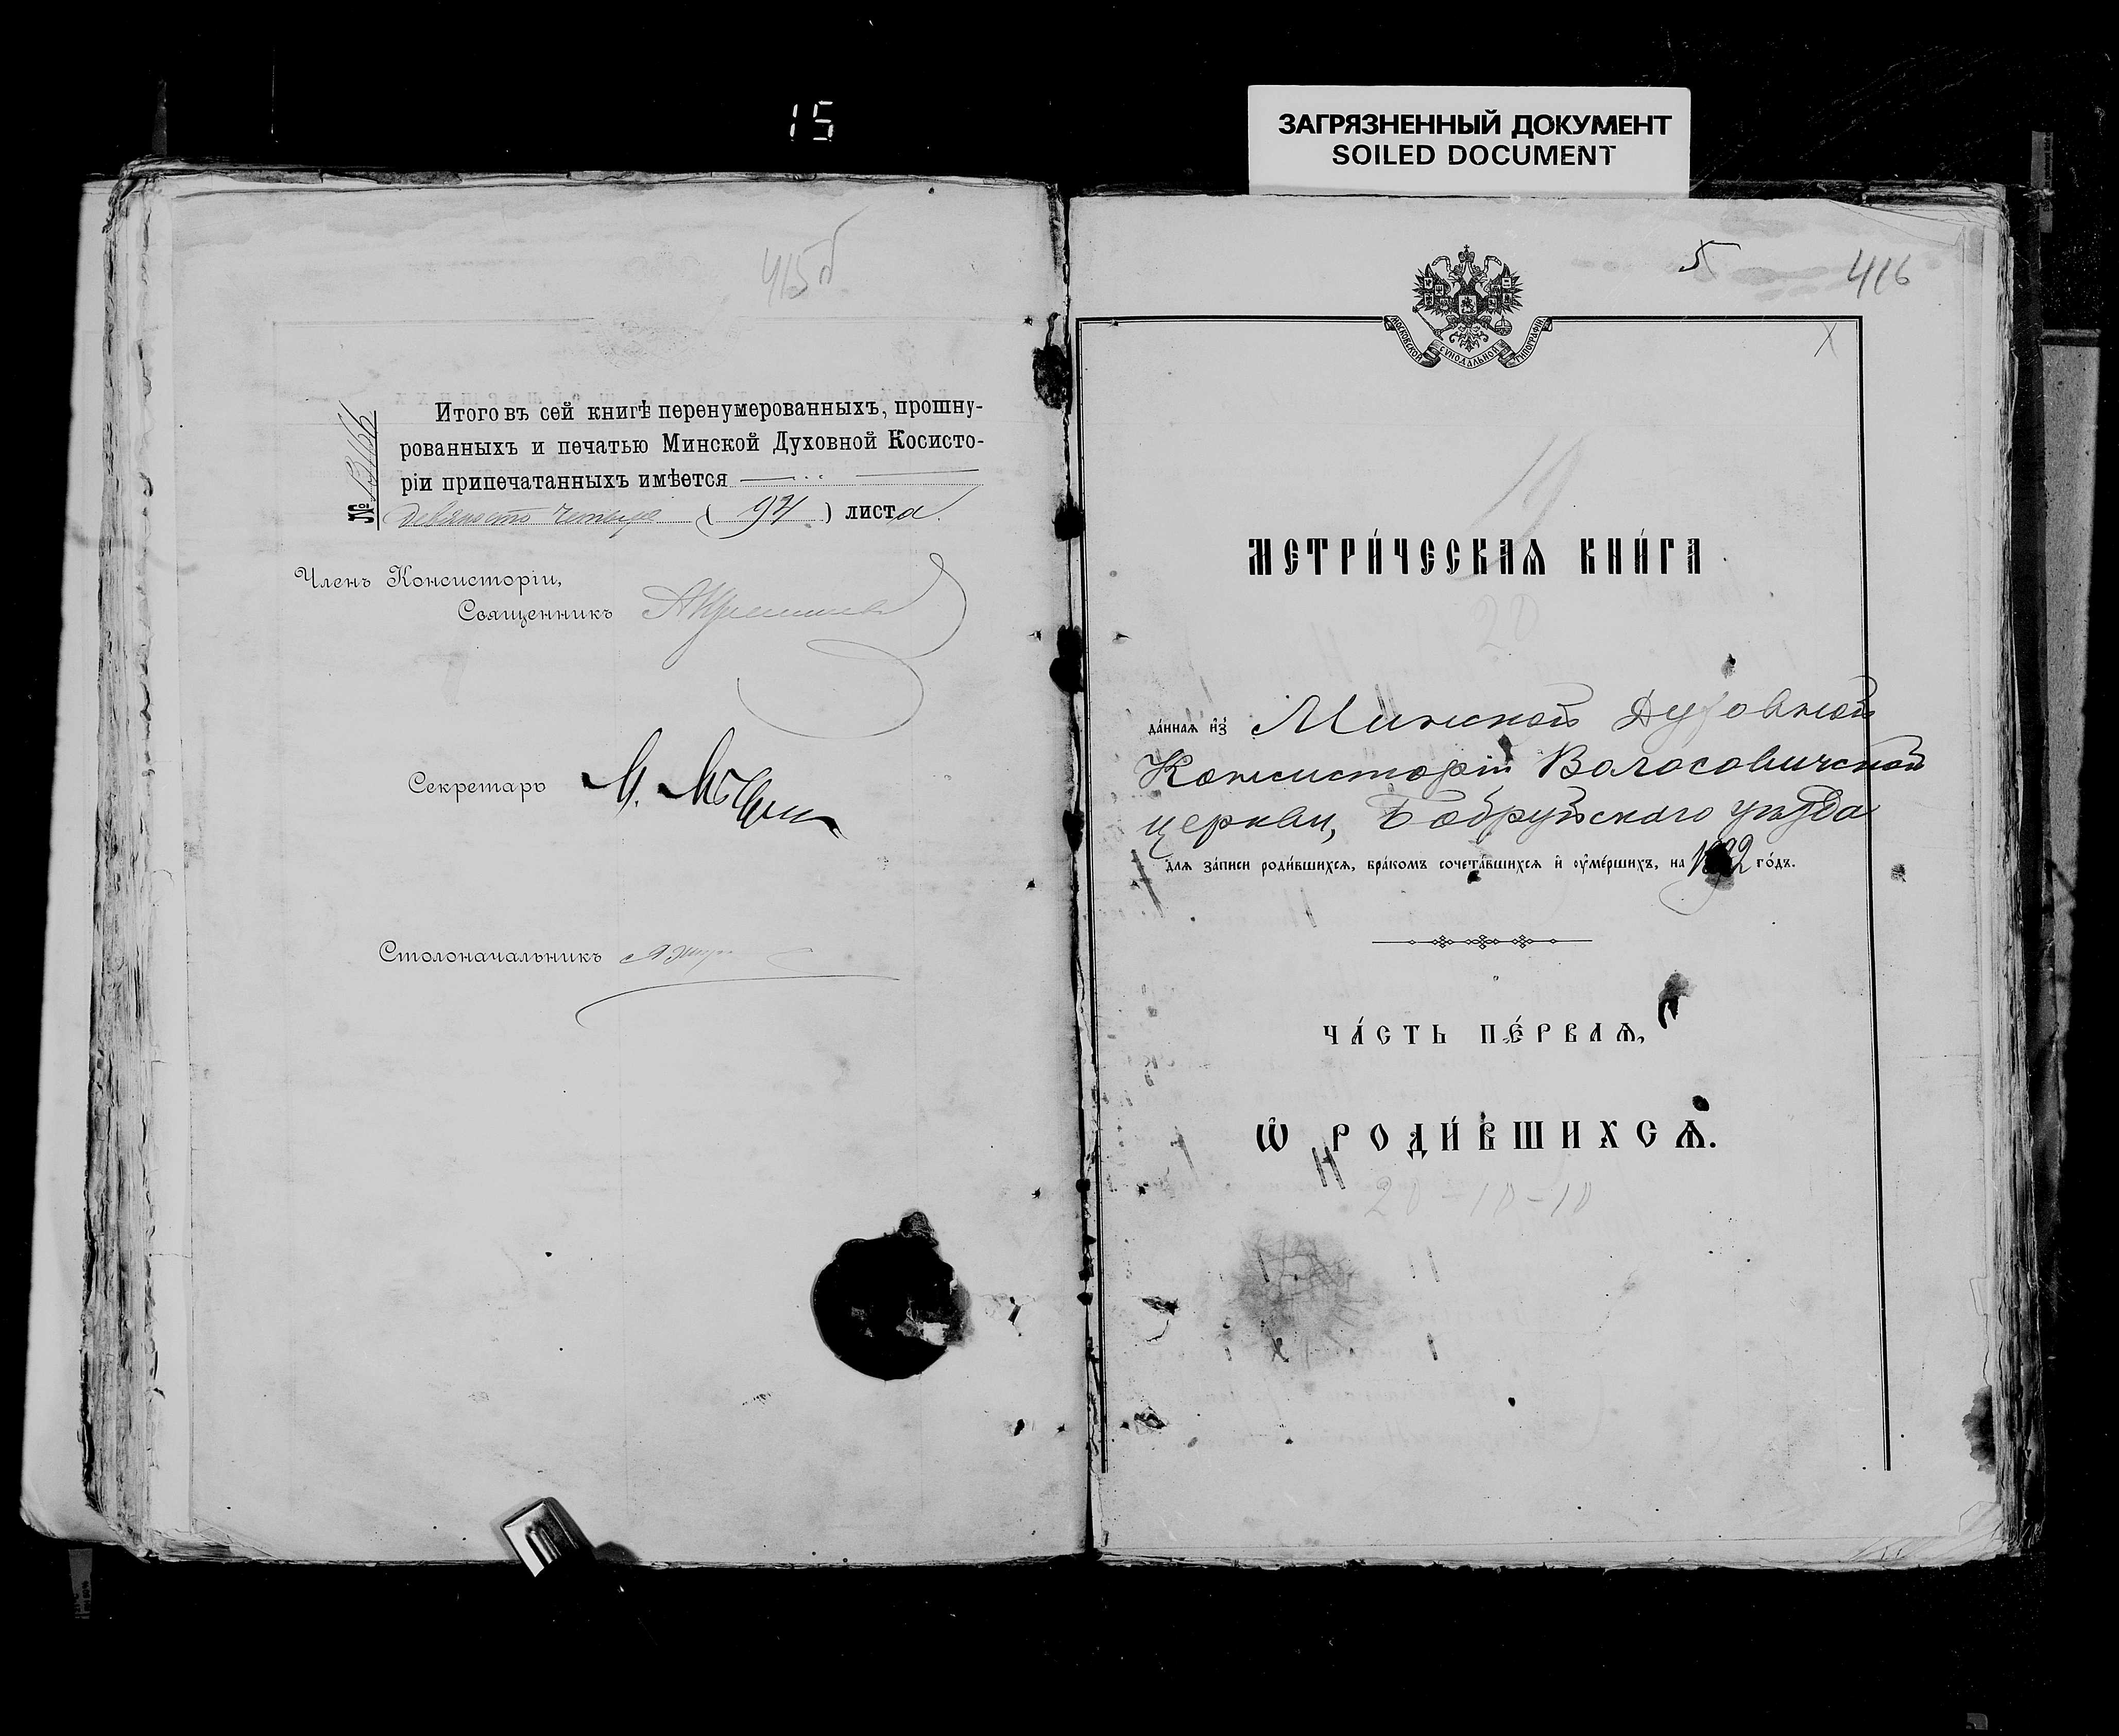 15
ЗАГРЯЗНЕННЫЙ ДОКУМЕНТ
SOILED DOCUMENT
415б
Итого въ сей книгѣ перенумерованныхъ, прошну-
рованныхъ и печатью Минской Духовной Косисто-
ріи припечатанныхъ имѣется
девяносто четыре (94) листа.
№
Членъ Консисторіи,
Священникъ
Секретарь
Столоначальникъ
5
416
МОСКОВСКОЙ СѴНОДАЛЬНОЙ ТИПОГРАФІИ
19
МЕТРИ́ЧЕСКАѦ КНИ́ГА
20
да́ннаѧ и҆з̾ Минской Духовной
Консисторіи Волосовичской
церкви, Бобруйскаго уѣзда
для за́писи роди́вшихсѧ, бра́комъ сочета́вшихсѧ и҆ ᲂу҆ме́ршихъ, на 1892 го́дъ.
ЧА́СТЬ ПЕ́РВАѦ,
Ѽ РОДИ́ВШИХСѦ.
20-10-10